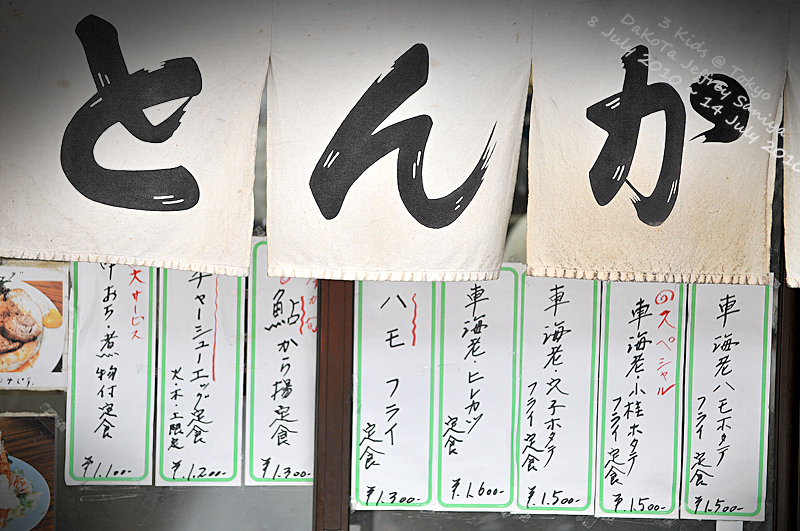 3 Kids @ Tokyo
DaKoTa Jeffrey Sumiya
8 July 2010 - 14 July 2010
とんか
車海老ハモホタテ
フライ定食
¥1,500-
のスペシャル
車海老・小柱ホタテ
フライ定食
¥1,500-
車海老・穴子ホタテ
フライ定食
¥1,500-
車海老ヒレカツ
定食
¥1,600-
ハモフライ
定食
¥1,300-
鮎から揚定食
¥1,300-
チャーシューエッグ定食
火・木・土限定
¥1,200-
大サービス
あら煮
物付定食
¥1,100-